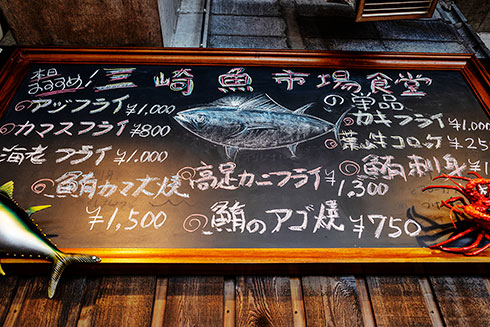 本日おすすめ！三崎魚市場食堂の単品
アジフライ ¥1,000
カマスフライ ¥800
海老フライ ¥1,000
鮪カマ大焼 ¥1,500
高足カニフライ ¥1,300
鮪のアゴ焼 ¥750
カキフライ ¥1,00
葉山牛コロッケ ¥25
鮪刺身 ¥1